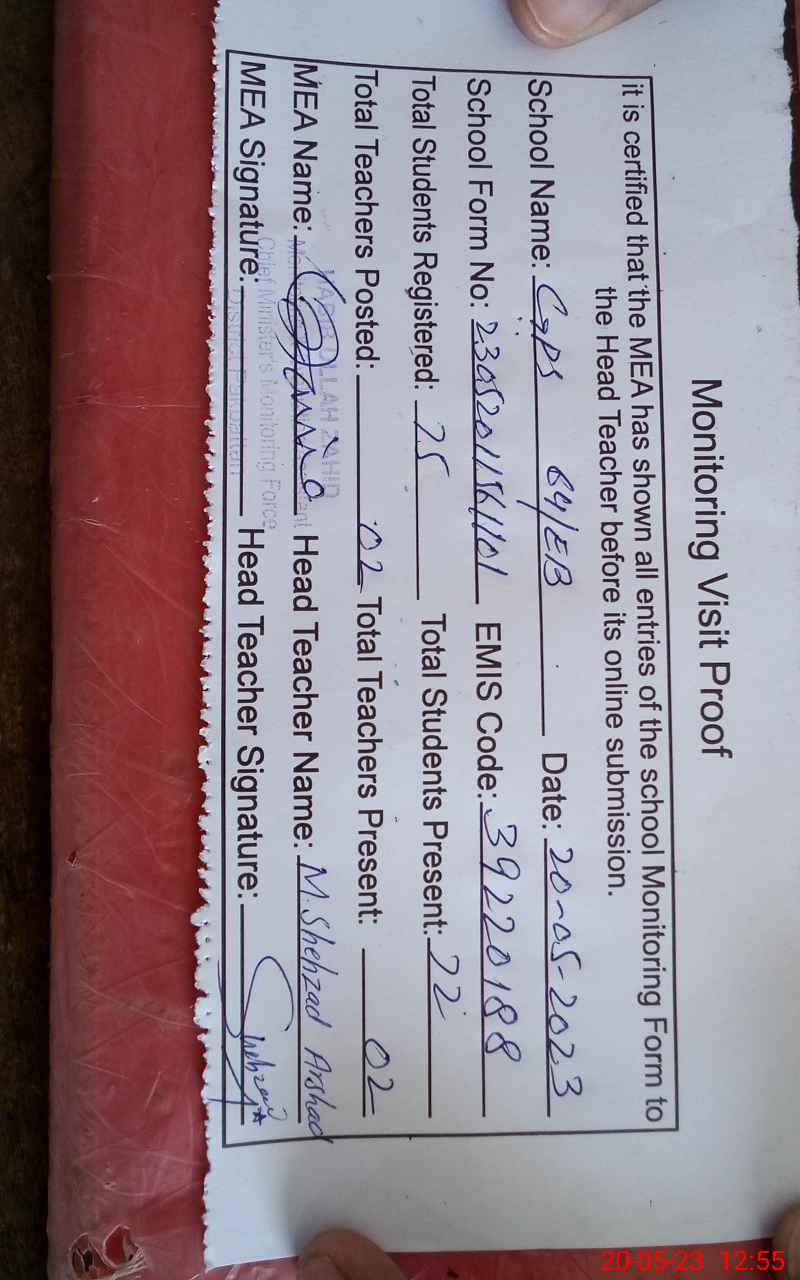 Monitoring Visit Proof
it is certified that the MEA has shown all entries of the school Monitoring Form to
the Head Teacher before its online submission.
School Name: GPS 64/EB Date: 20-05-2023
School Form No: EMIS Code: 39220188
Total Students Registered: 75 Total Students Present: 72
Total Teachers Posted: 02 Total Teachers Present: 02
MEA Name: Head Teacher Name: M. Shehzad Arshad
MEA Signature: Head Teacher Signature: Shehzad
ZAHID
Chief Minister's Monitoring Force
District Pakpattan
20-05-23 12:55